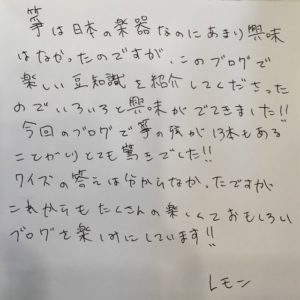 箏は日本の楽器なのにあまり興味
はなかったのですが、このブログで
楽しい豆知識を紹介してくださった
のでいろいろと興味がでてきまいた!!
今回のブログで箏の弦が13本もある
ことがしりとても驚きでした!!
クイズの答えは分からなかったですが
これからもたくさんの楽しくておもしろい
ブログを楽しみにしています!!
レモン